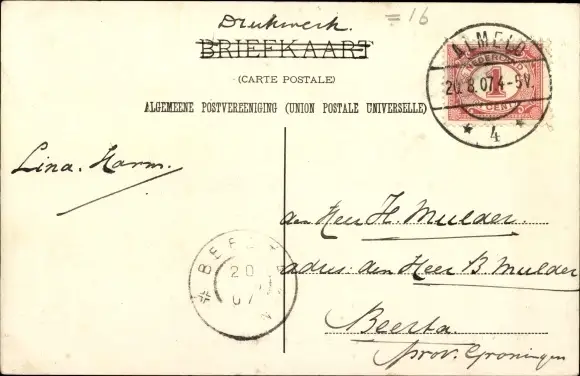 Drukwerk.
= 16
BRIEFKAART
(CARTE POSTALE)
ALGEMEENE POSTVEREENIGING (UNION POSTALE UNIVERSELLE)
ALMELO
20.8.07 4-5V.
4
NEDERLAND
1
CENT
Lina. Harm.
den Heer H. Mulder.
adres: den Heer B. Mulder
Beerta
prov. Groningen
20
07